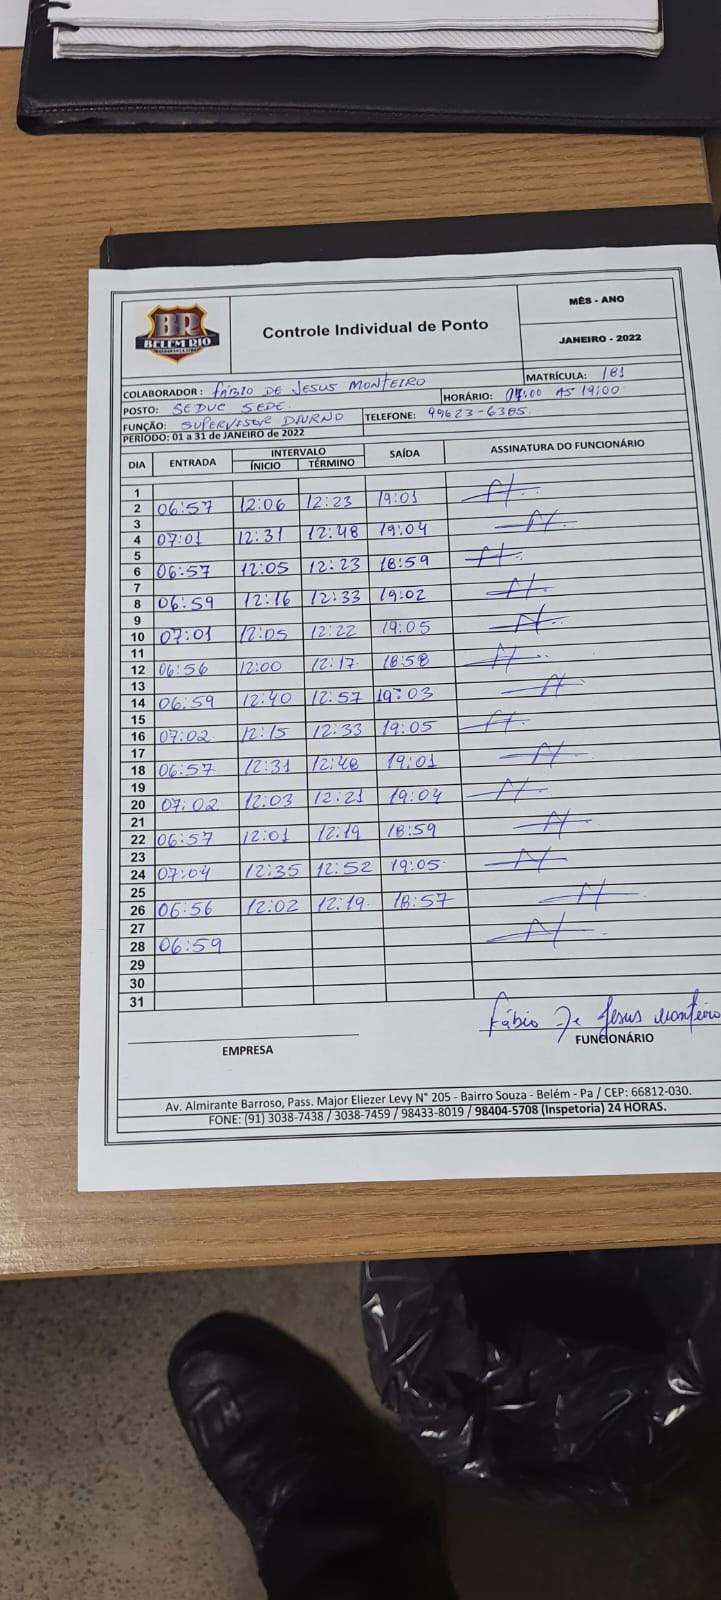 BR
BELEM RIO
Controle Individual de Ponto
MÊS - ANO
JANEIRO - 2022
COLABORADOR : FÁBIO DE JESUS MONTEIRO
MATRÍCULA: 181
POSTO: SEDUC SEDE.
HORÁRIO: 07:00 AS 19:00
FUNÇÃO: SUPERVISOR DIURNO
TELEFONE: 99623-6385
PERÍODO: 01 a 31 de JANEIRO de 2022
DIA ENTRADA INTERVALO SAÍDA ASSINATURA DO FUNCIONÁRIO
ÍNICIO TÉRMINO
1
2 06:57 12:06 12:23 19:01
3
4 07:01 12:31 12:48 19:04
5
6 06:57 12:05 12:23 18:59
7
8 06:59 12:16 12:33 19:02
9
10 07:01 12:05 12:22 19:05
11
12 06:56 12:00 12:17 18:58
13
14 06:59 12:40 12:57 19:03
15
16 07:02 12:15 12:33 19:05
17
18 06:57 12:31 12:48 19:01
19
20 07:02 12:03 12:21 19:04
21
22 06:57 12:01 12:19 18:59
23
24 07:04 12:35 12:52 19:05
25
26 06:56 12:02 12:19 18:57
27
28 06:59
29
30
31
Fábio De Jesus Monteiro
EMPRESA
FUNCIONÁRIO
Av. Almirante Barroso, Pass. Major Eliezer Levy N° 205 - Bairro Souza - Belém - Pa / CEP: 66812-030.
FONE: (91) 3038-7438 / 3038-7459 / 98433-8019 / 98404-5708 (Inspetoria) 24 HORAS.